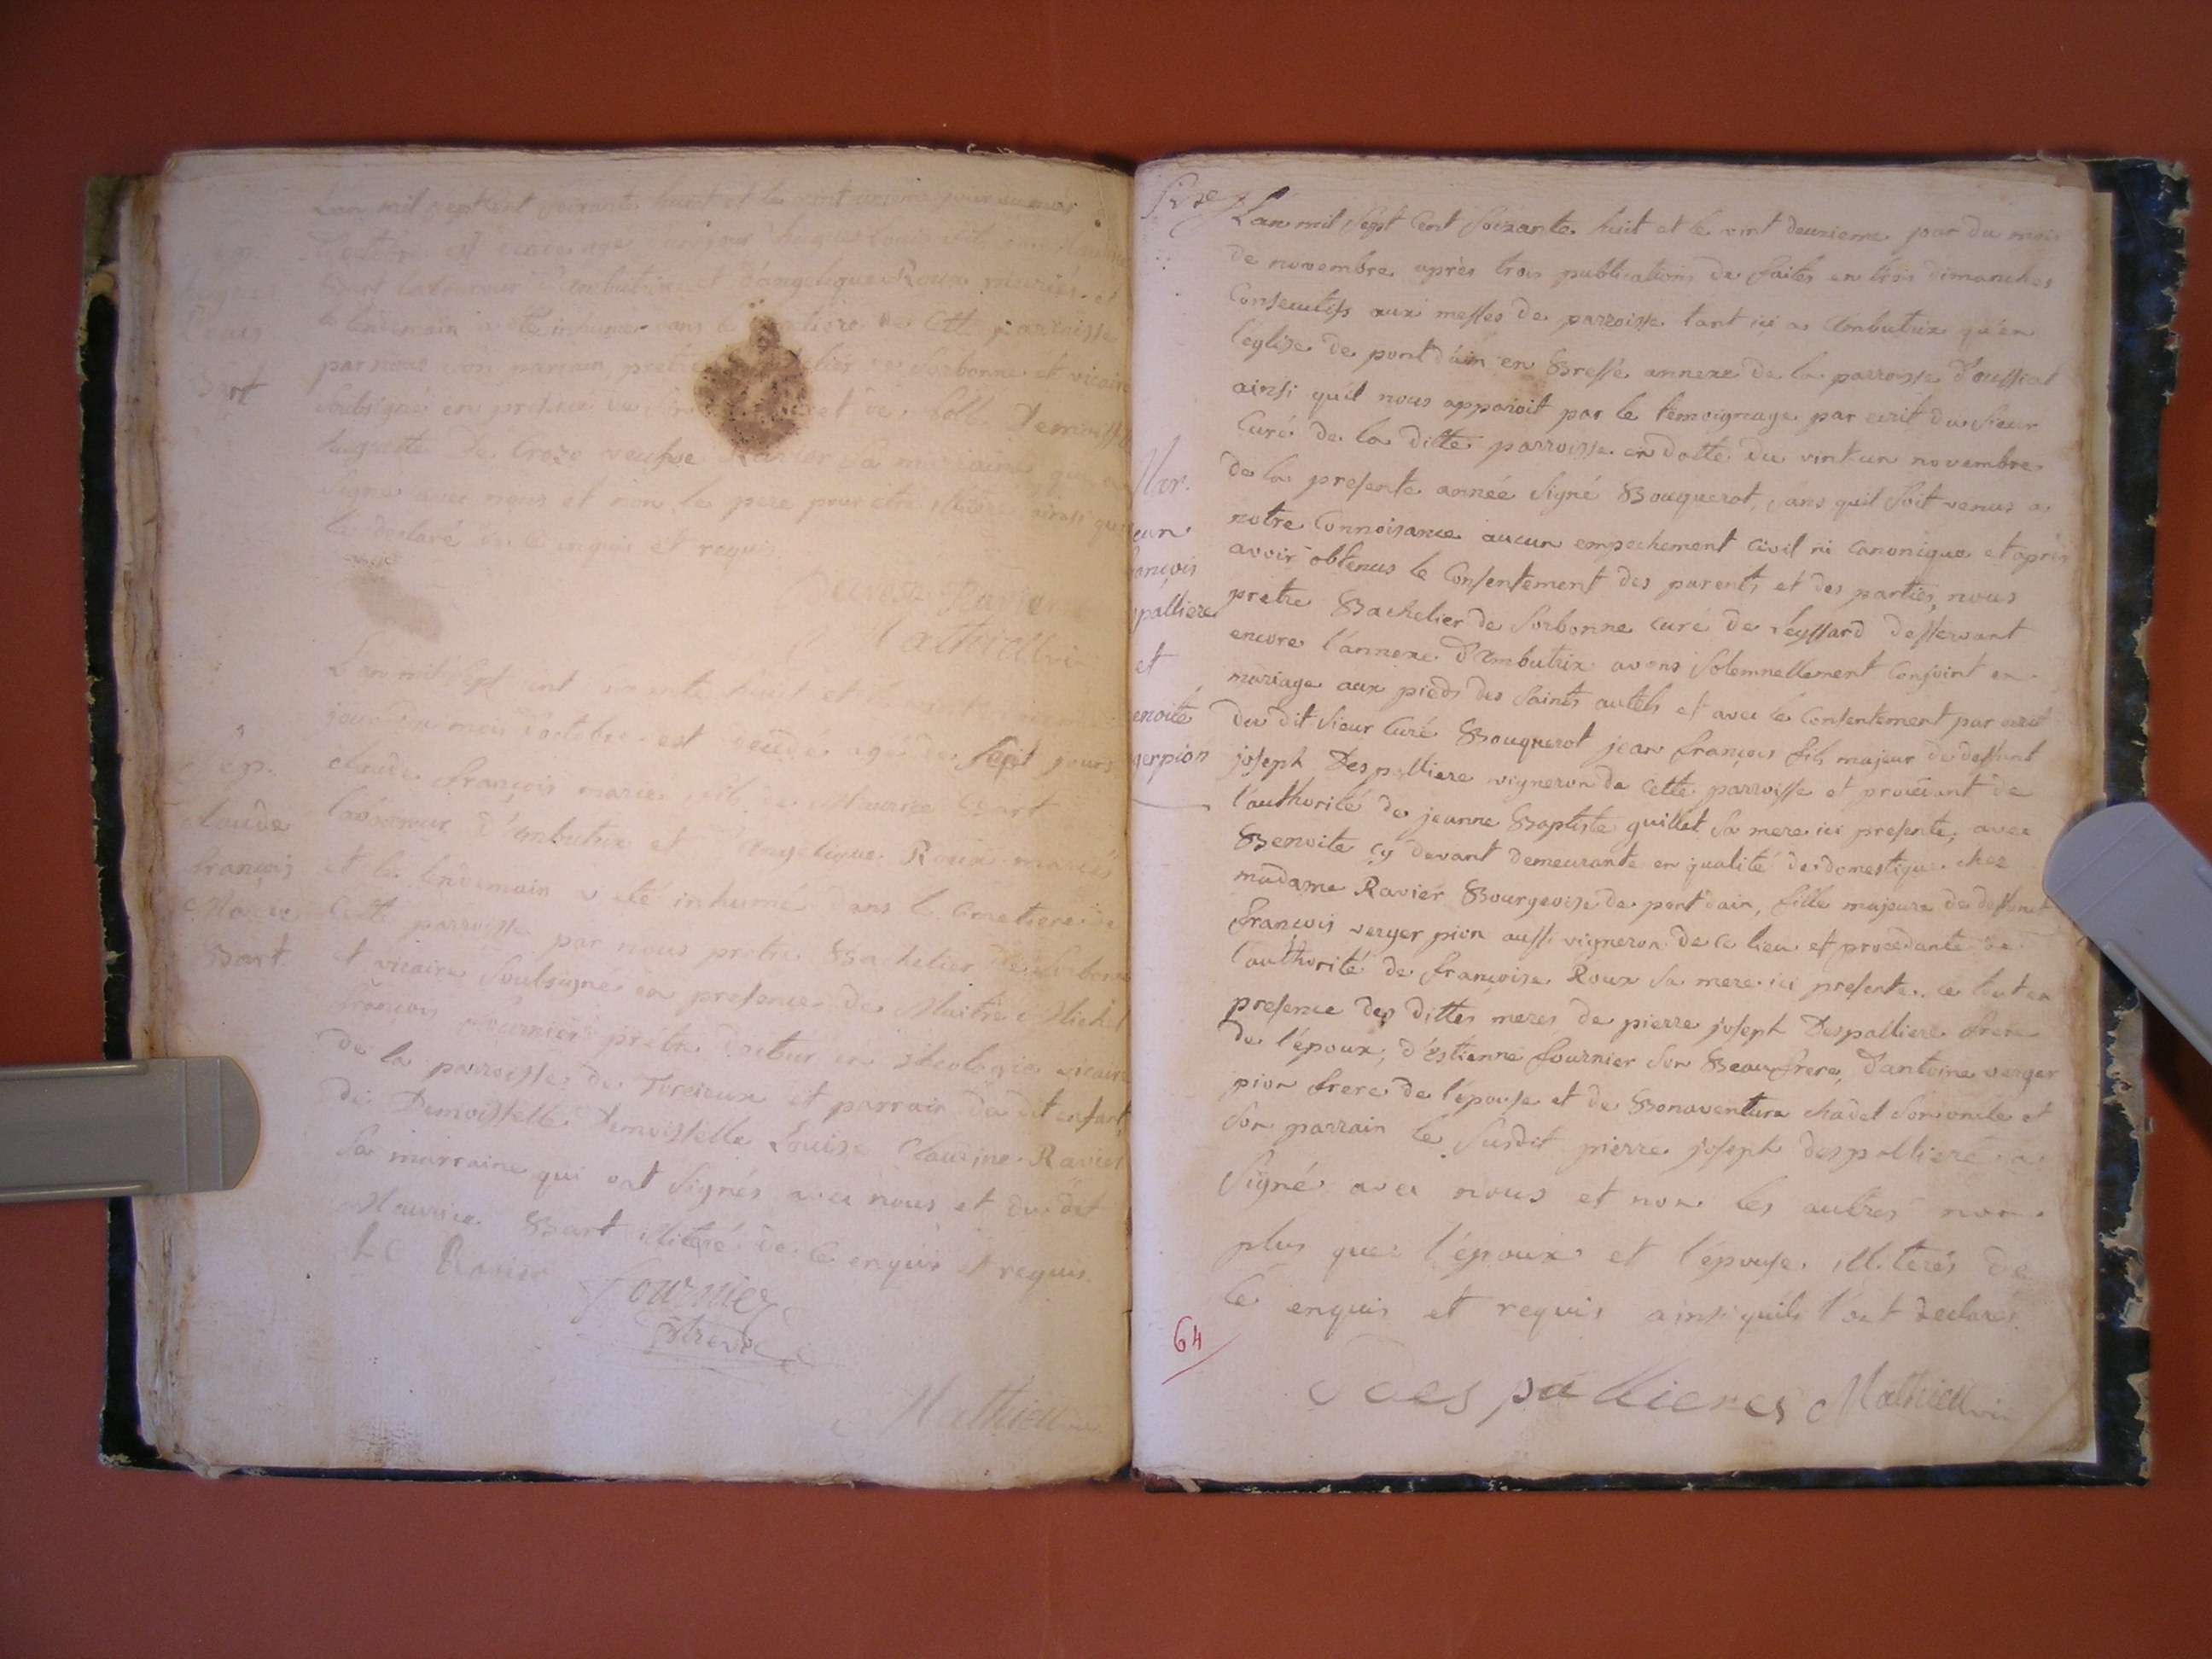 L'an mil sept cent soixante huit et le vint unieme jour du mois
d'octobre est decedé agé d'un jour hugue louis fils de Maurice
Bart laboureur d'ambutrix et d'angelique Roux mariés et
le lendemain a été inhumé dans le cimetiere de cette parroisse
par nous son parrain, pretre bachelier de Sorbonne et vicaire
Soubsigné en presence de et de Demoiselle
huguette De Crozo veufve Ravier sa marraine qui a
Signé avec nous et non le pere pour etre illiteré ainsi quil
la declaré de ce enquis et requis.
Decroso Ravier
Mathieu vic
Dep.
hugues
louis
Bart
L'an mil sept cent soixante huit et le
jour du mois d'octobre est decedé agé de sept jours
claude françois marie fils de Maurice Bart
laboureur d'ambutrix et d'Angelique Roux mariés
et le lendemain a été inhumé dans le cimetiere de
cette parroisse par nous pretre Bachelier de Sorbonne
et vicaire soubsigné en presence de Maitre Michel
françois fournier prêtre docteur en theologie vicaire
de la parroisse de Torcieux et parrain du dit enfant,
de Demoisselle Demoisselle Louise Claudine Ravier
Sa marraine qui ont signés avec nous et du dit
Maurice Bart illiteré de ce enquis et requis.
L C Ravier
fournier
ptre vic
Mathieu
Dep.
claude
françois
Marie
Bart
Size
L'an mil Sept Cent Soixante huit et le vint deuxieme jour du mois
de novembre après trois publications de faites en trois dimanches
Consecutifs aux messes de parroisse tant ici a Ambutrix qu'en
l'eglise de pont d'ain en Bresse annexe de la parroisse d'oussiat
ainsi qu'il nous apparoit par le temoignage par ecrit du Sieur
Curé de la ditte parroisse en datte du vint-un novembre
de la presente année signé Bouquerot, sans quil soit venus a
notre Connoisance aucun empechement Civil ni canonique et après
avoir obtenus le Consentement des parents et des parties, nous
pretre Bachelier de Sorbonne curé de leyssard desservant
encore l'annexe d'Ambutrix avons Solemnellement Conjoint en
mariage aux pieds des Saints autels et avec le Consentement par ecrit
du dit Sieur Curé Bouquerot jean françois fils majeur de deffunt
joseph Despalliere vigneron de cette parroisse et procedant de
l'authorité de jeanne Baptiste guillet Sa mere ici presente, avec
Benoite cy devant demeurante en qualité de domestique chez
madame Ravier Bourgeoise de pont dain, fille majeure de deffunt
françois verger pion aussi vigneron de ce lieu et procedante de
l'authorité de françoise Roux Sa mere ici presente. ce tout en
presence des dittes meres de pierre joseph Despalliere frere
de l'époux, d'Estienne fournier Son Beau frere, d'antoine verger
pion frere de l'épouse et de Bonaventure chadel Son oncle et
Son parrain le Susdit pierre joseph despalliere a
Signé avec nous et non les autres non
plus que l'époux et l'épouse illiterés de
ce enquis et requis ainsi quils l'ont declarés.
Despallieres Mathieu vic
Mar.
ean
ançois
palliere
et
enoite
gerpion
64